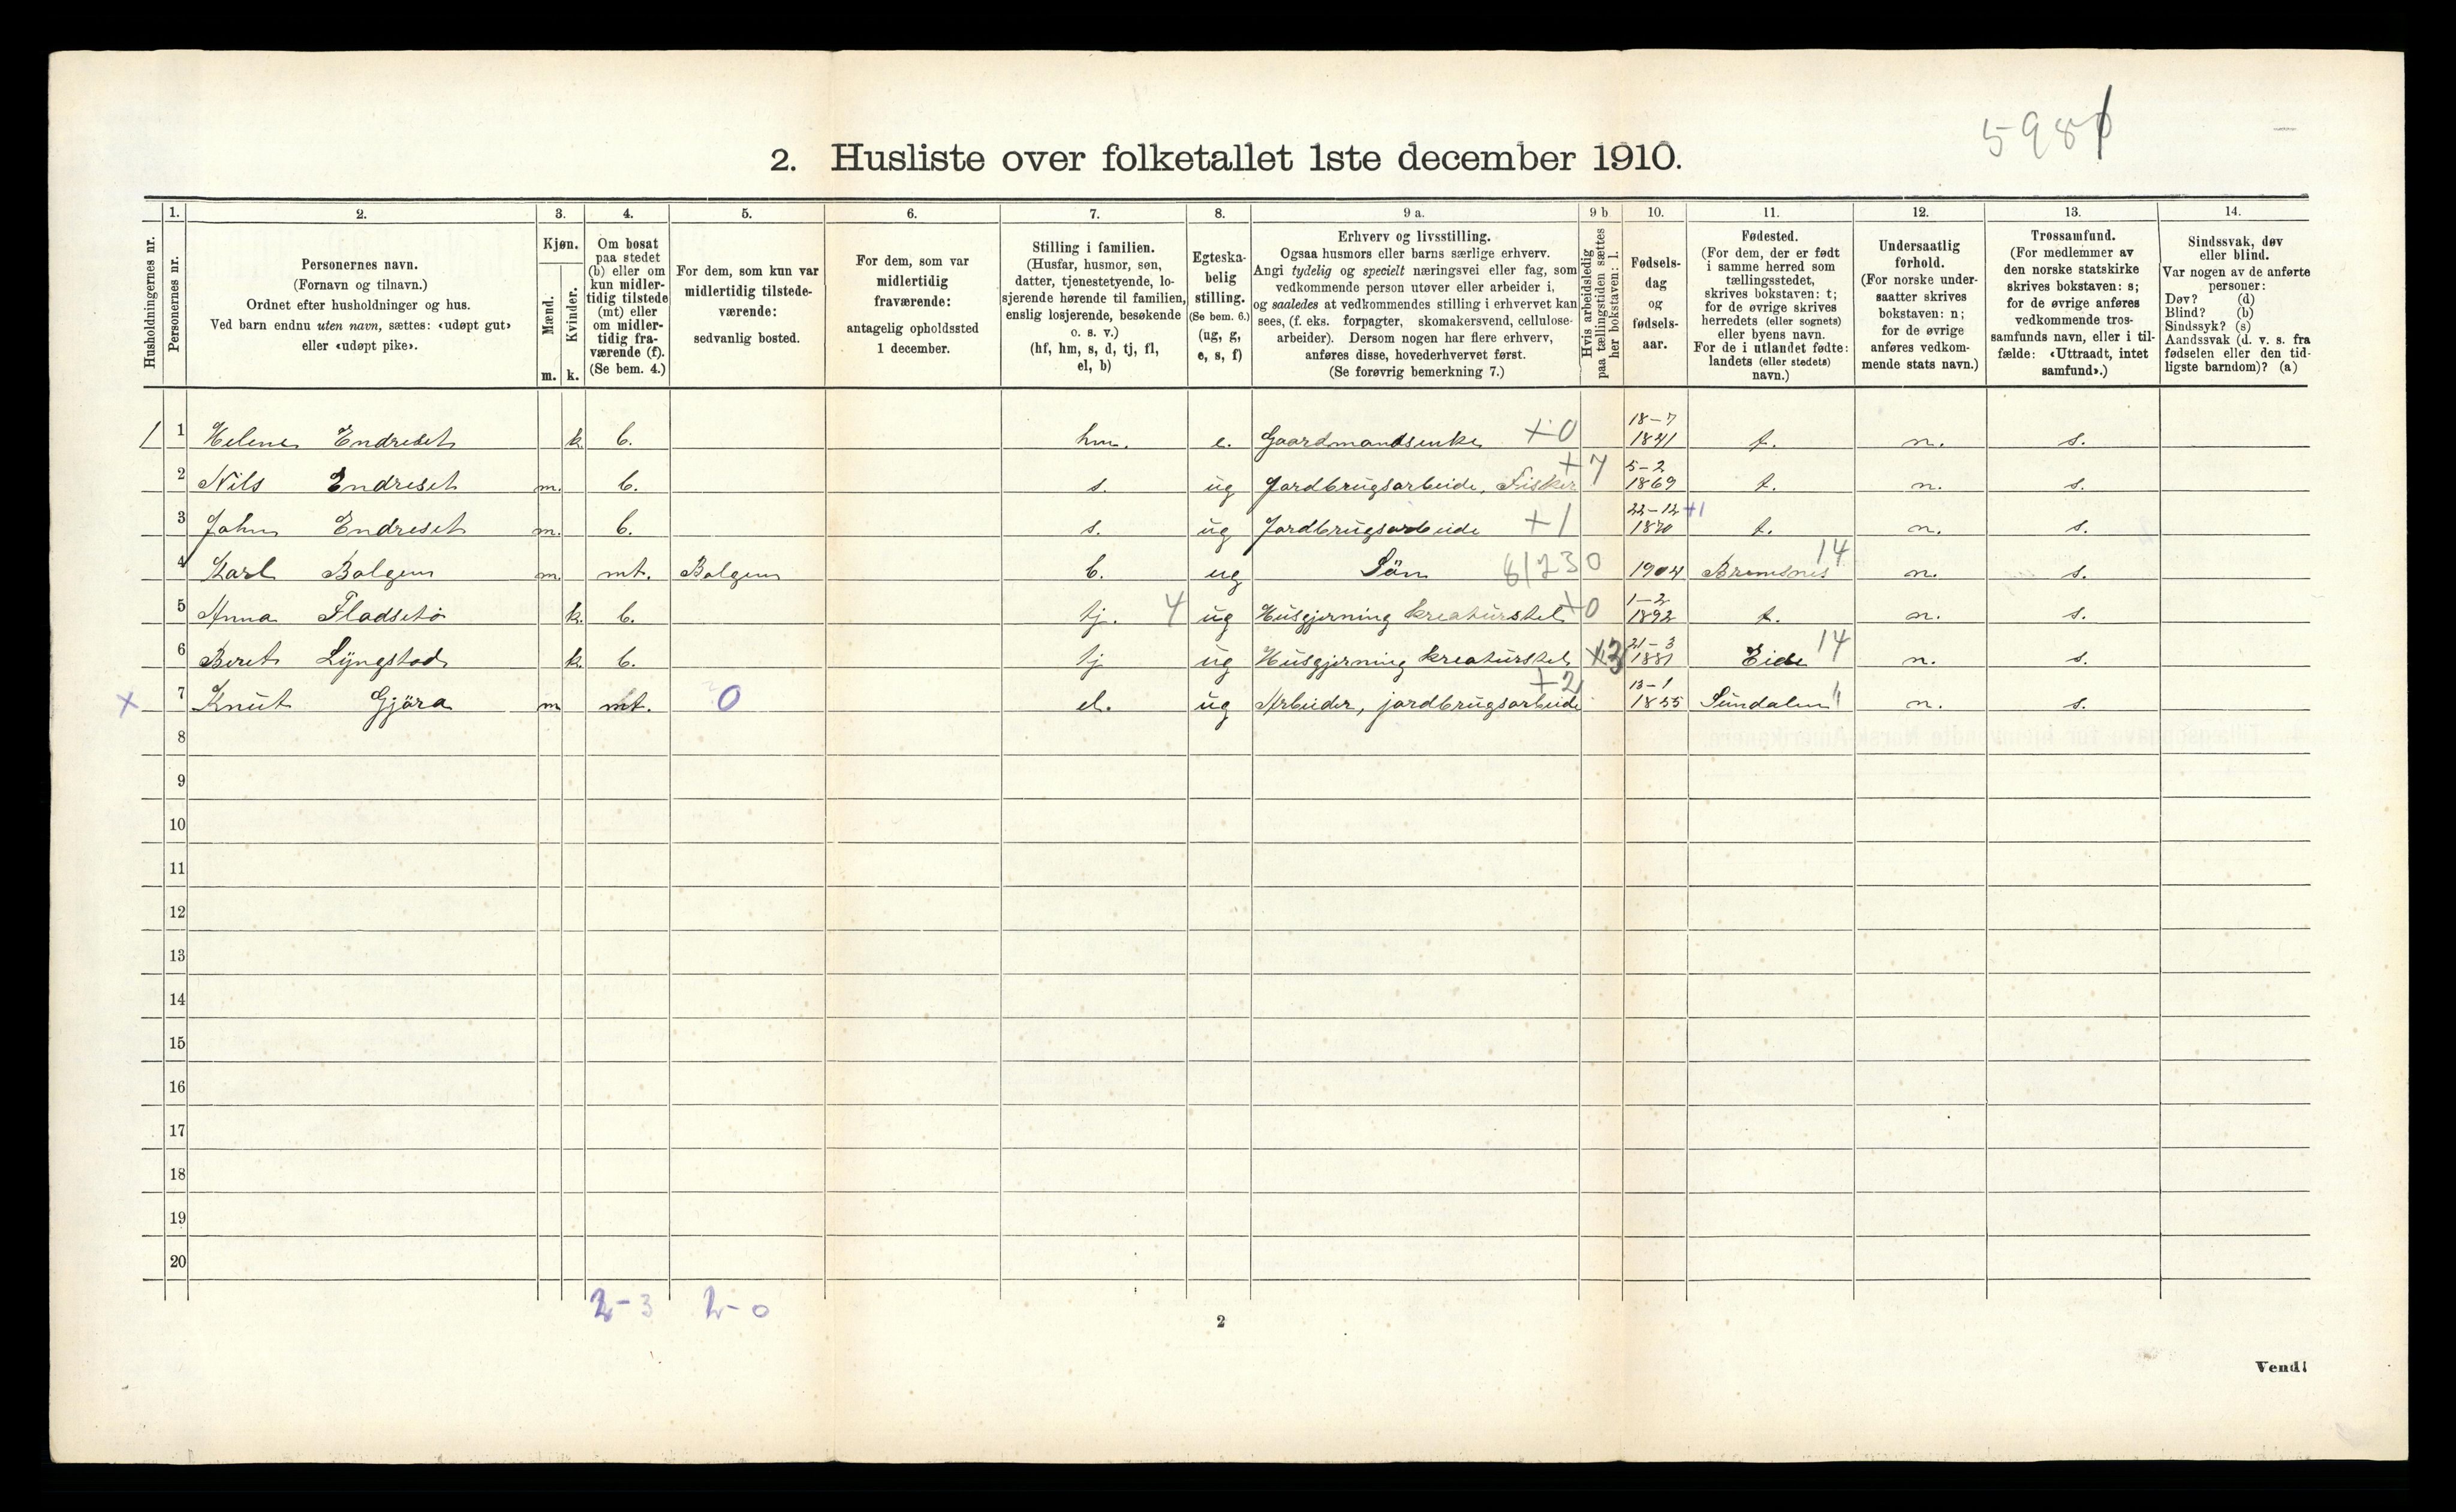 598
2. Husliste over folketallet 1ste december 1910.
Husholdningernes nr.
1. Personernes nr.
2. Personernes navn.
(Fornavn og tilnavn.)
Ordnet efter husholdninger og hus.
Ved barn endnu uten navn, sættes: «udøpt gut»
eller «udøpt pike».
3. Kjøn.
Mænd. m.
Kvinder. k.
4. Om bosat
paa stedet
(b) eller om
kun midler-
tidig tilstede
(mt) eller
om midler-
tidig fra-
værende (f).
(Se bem. 4.)
5. For dem, som kun var
midlertidig tilstede-
værende:
sedvanlig bosted.
6. For dem, som var
midlertidig
fraværende:
antagelig opholdssted
1 december.
7. Stilling i familien.
(Husfar, husmor, søn,
datter, tjenestetyende, lo-
sjerende hørende til familien,
enslig losjerende, besøkende
o. s. v.)
(hf, hm, s, d, tj, fl,
el, b)
8. Egteska-
belig
stilling.
(Se bem. 6.)
(ug, g,
e, s, f)
9 a. Erhverv og livsstilling.
Ogsaa husmors eller barns særlige erhverv.
Angi tydelig og specielt næringsvei eller fag, som
vedkommende person utøver eller arbeider i,
og saaledes at vedkommendes stilling i erhvervet kan
sees, (f. eks. forpagter, skomakersvend, cellulose-
arbeider). Dersom nogen har flere erhverv,
anføres disse, hovederhvervet først.
(Se forøvrig bemerkning 7.)
9 b. Hvis arbeidsledig
paa tællingstiden sættes
her bokstaven: l.
10. Fødsels-
dag
og
fødsels-
aar.
11. Fødested.
(For dem, der er født
i samme herred som
tællingsstedet,
skrives bokstaven: t;
for de øvrige skrives
herredets (eller sognets)
eller byens navn.
For de i utlandet fødte:
landets (eller stedets)
navn.)
12. Undersaatlig
forhold.
(For norske under-
saatter skrives
bokstaven: n;
for de øvrige
anføres vedkom-
mende stats navn.)
13. Trossamfund.
(For medlemmer av
den norske statskirke
skrives bokstaven: s;
for de øvrige anføres
vedkommende tros-
samfunds navn, eller i til-
fælde: «Uttraadt, intet
samfund».)
14. Sindssvak, døv
eller blind.
Var nogen av de anførte
personer:
Døv? (d)
Blind? (b)
Sindssyk? (s)
Aandssvak (d. v. s. fra
fødselen eller den tid-
ligste barndom)? (a)
1 1 Helene Endreset k. b. hm. e. Gaardmandsenke +0 18-7 1841 t. n. s.
2 Nils Endreset m. b. s. ug Jordbrugsarbeide, Fisker +7 5-2 1869 t. n. s.
3 John Endreset m. b. s. ug Jordbrugsarbeide +1 22-12 +1 1870 t. n. s.
4 Karl Bolgen m. mt. Bolgen b. ug Sön 0 1904 Bremsnes 14 n. s.
5 Anna Fladsetö k. b. tj. 4 ug Husgjerning kreaturstel +0 1-2 1892 t. n. s.
6 Beret Lyngstad k. b. tj ug Husgjerning kreaturstel 21-3 1881 Eide 14 n. s.
x 7 Knut Gjöra m mt. 0 el. ug Arbeider, jordbrugsarbeide +2 13-1 1855 Sundalen n. s.
8
9
10
11
12
13
14
15
16
17
18
19
20
2-3 2-0
2
Vend!